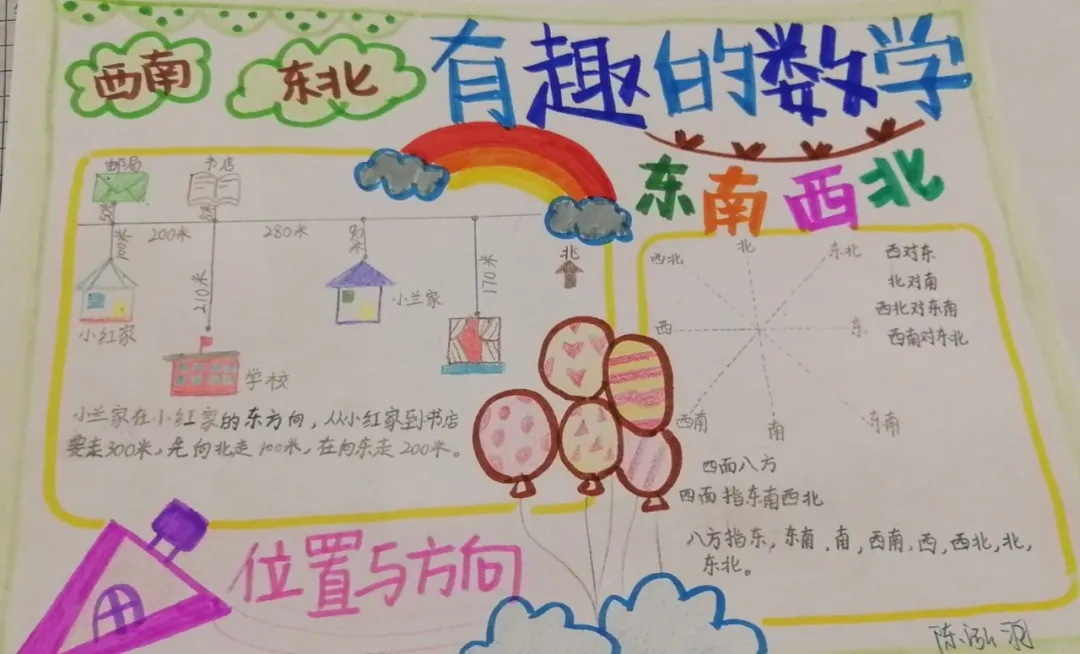 西南
东北
有趣的数学
东南西北
邮局
书店
100米
200米
280米
90米
210米
170米
北
小红家
小兰家
学校
小兰家在小红家的东方向，从小红家到书店
要走300米，先向北走100米，在向东走200米。
北
西北
东北
西
东
西南
南
东南
西对东
北对南
西北对东南
西南对东北
四面八方
四面指东南西北
八方指东，东南，南，西南，西，西北，北，
东北。
位置与方向
陈泓羽